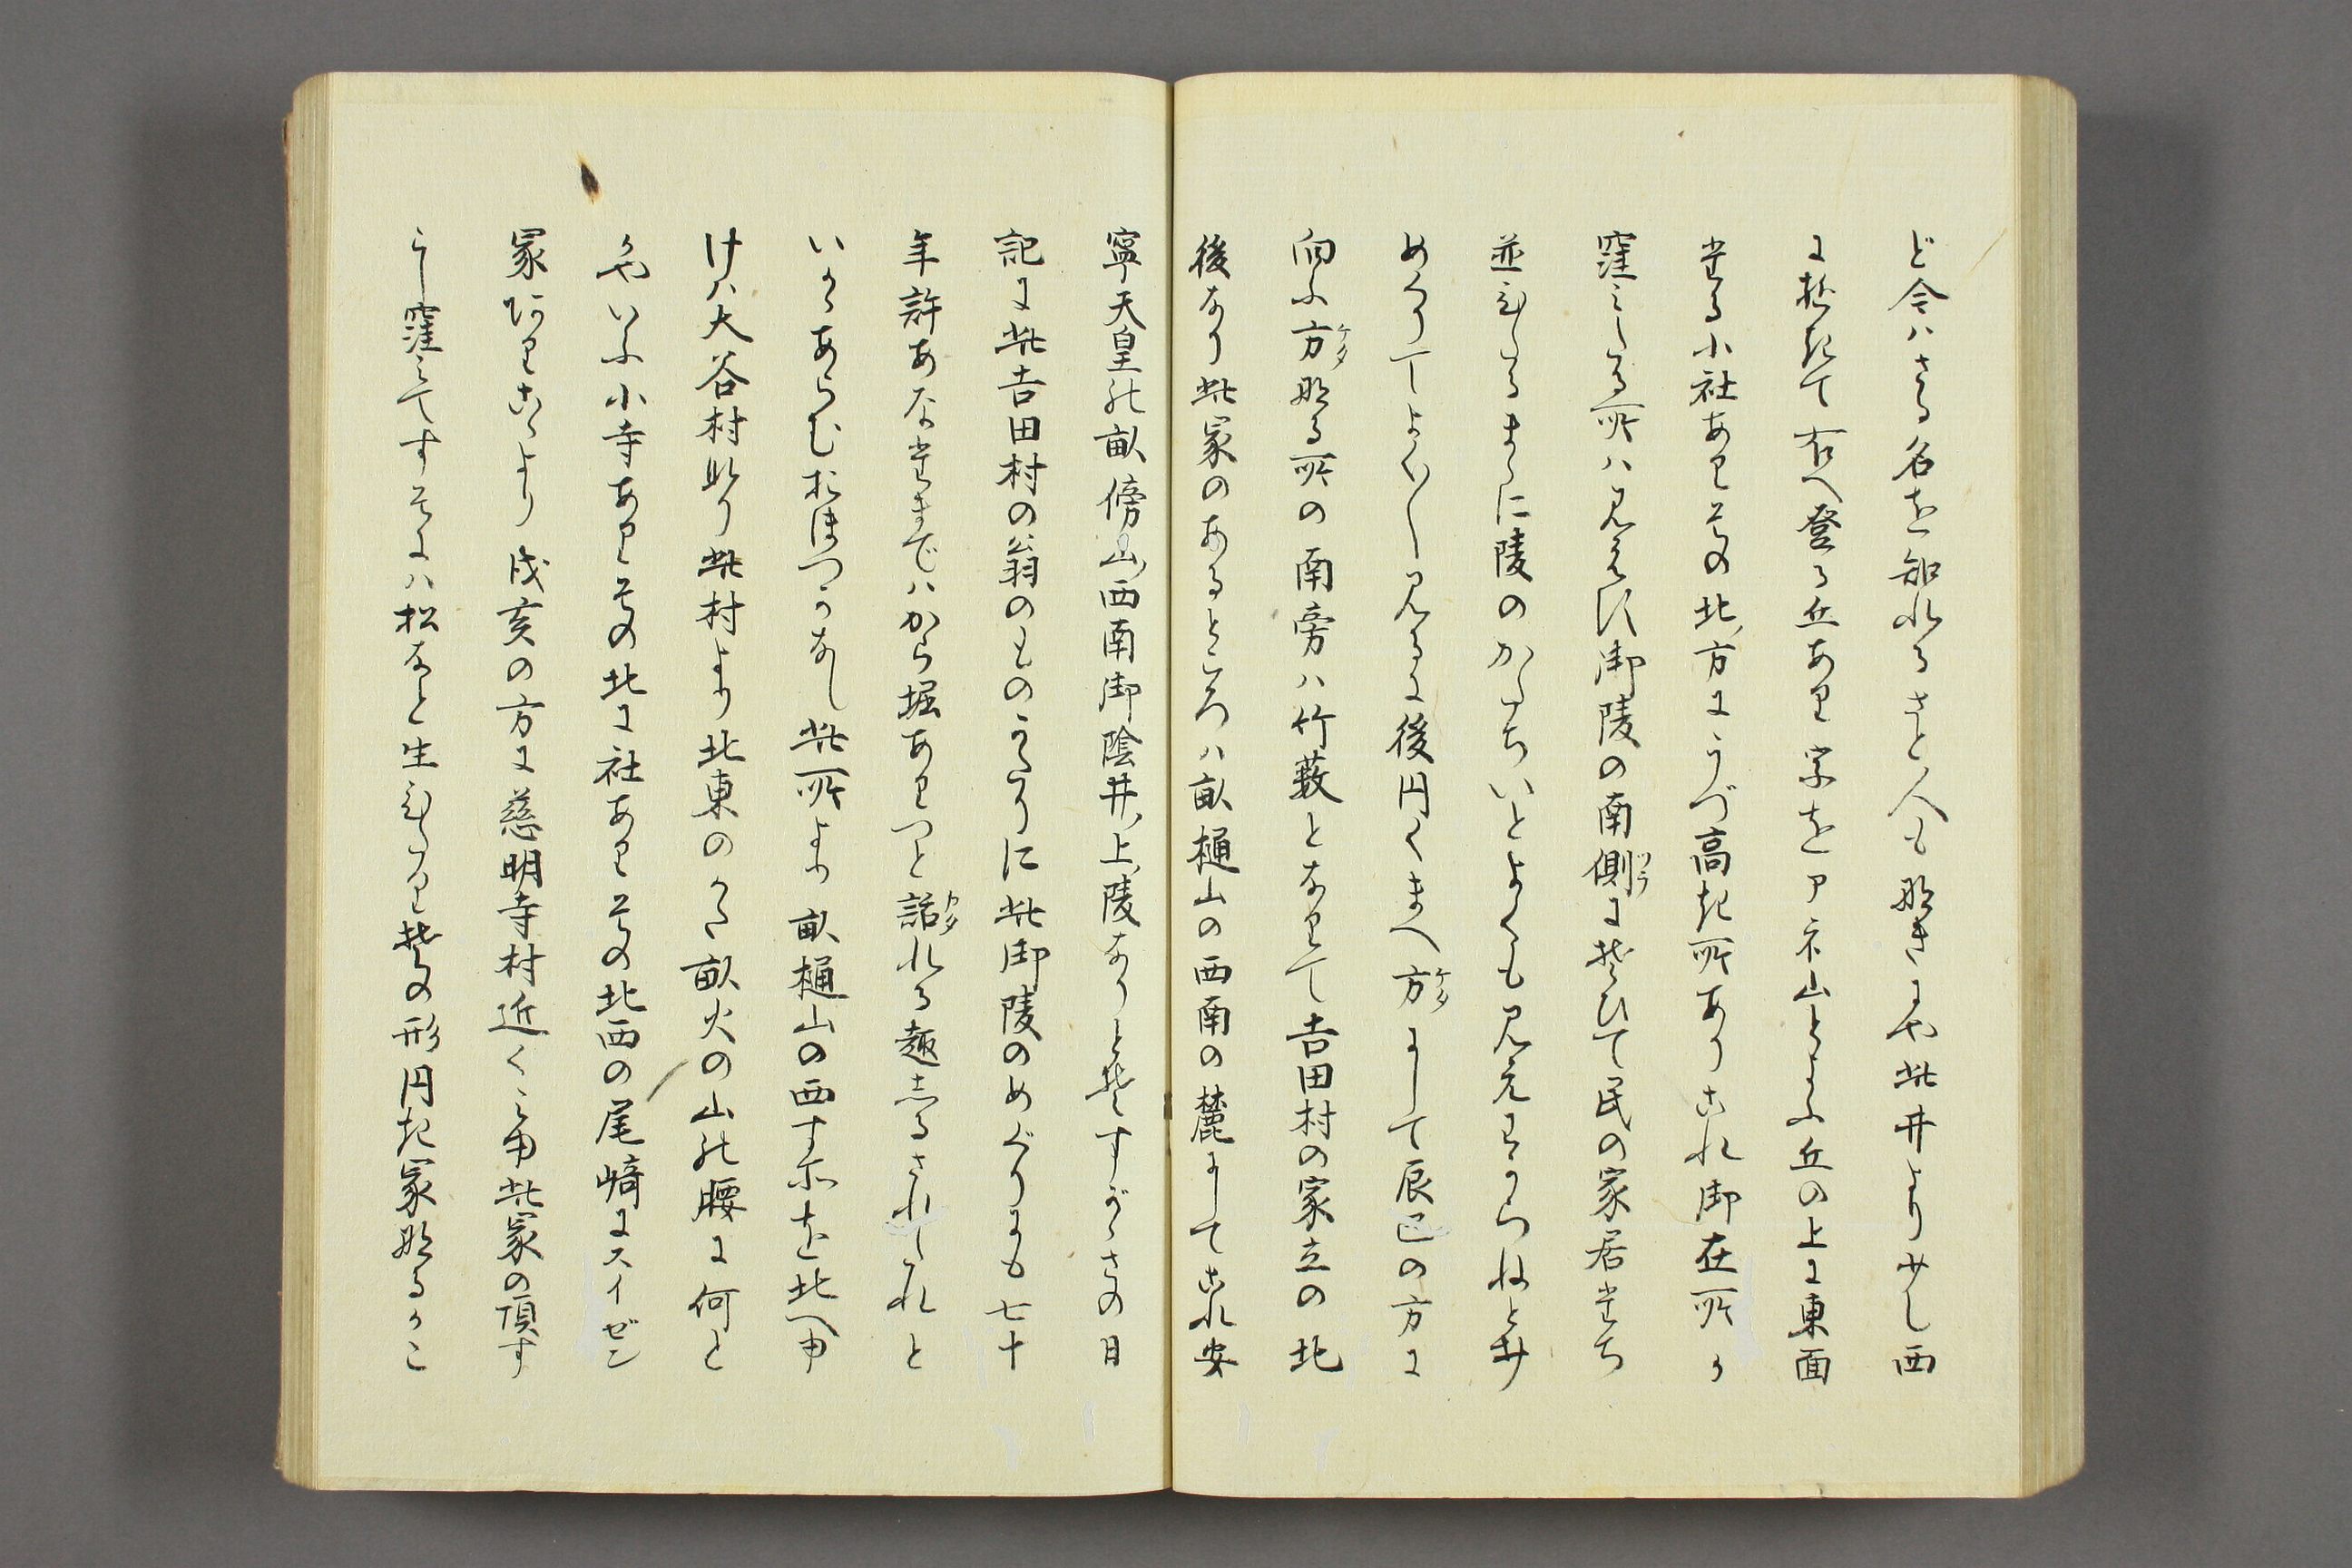 ど今ハさる名を知れるさと人も那きにや此井より少し西
に折れて右へ登る丘あり字をアネ山とよふ丘の上に東面
せる小社ありその北ノ方にうづ高き所ありこれ御在所か
窪ミしる所ハ見えす御陵の南側にそひて民の家居たち
並ひたるまゝに陵のかたちいとよくも見えわからねと廿
めくりてよく〳〵見るに後円くまへ方にして辰巳の方に
向ふ方那る所の南旁ハ竹藪となりて吉田村の家立の北
後なり此冢のあるところハ畝樋山の西南の麓にしてこれ安
寧天皇の畝傍山西南御陰井ノ上ノ陵なりとそすがゝさの日
記に此吉田村の翁のものかたりに此御陵のめぐりにも七十
年許あなたまでハから堀ありつと語れる趣しるされたれと
いかゝあらむおほつかなし此所より畝樋山の西すそを北へ申
けハ大谷村此り此村より北東のかた畝火の山の腰に何と
かやいふ小寺ありその北に社ありその北西の尾崎にスイゼン
冢ありこゝより戌亥の方に慈明寺村近くミゆ此冢の頂す
こし窪ミてすそにハ松なと生ひたりその形円き冢那るかこ